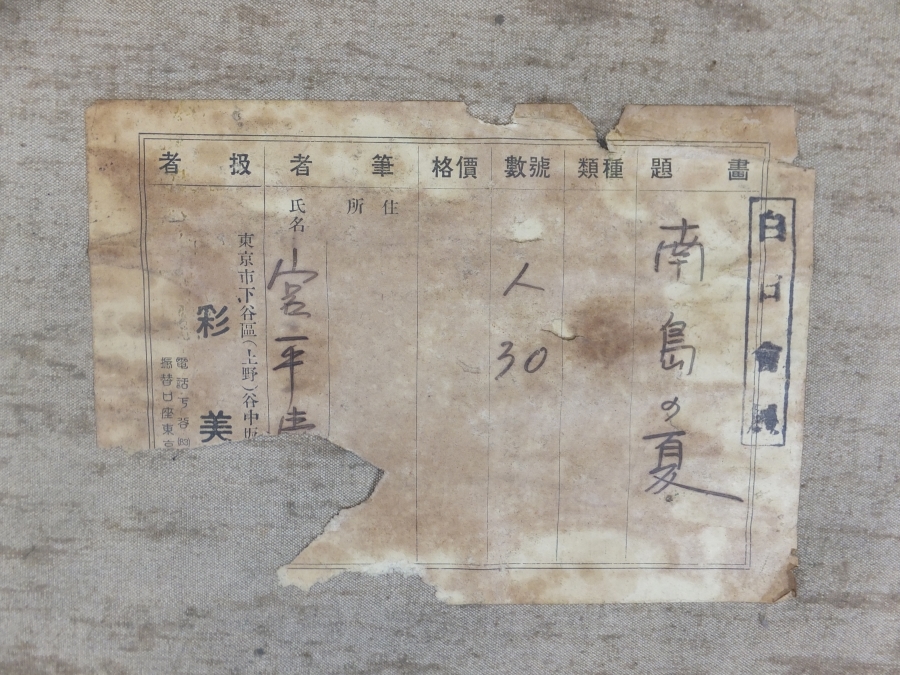 白日會
畫題
南島の夏
種類
號數
人30
價格
筆者
住所
氏名
宮平
扱者
東京市下谷區(上野)谷中
彩美
電話下谷
振替口座東京